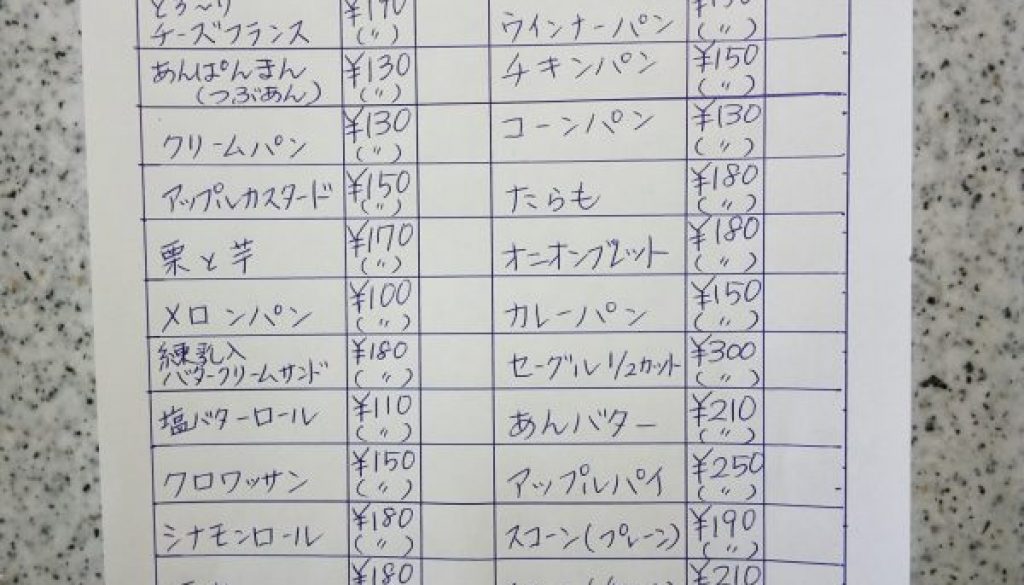 とろ〜り ¥190
チーズフランス (〃) ウインナーパン (〃)
あんぱんまん ¥130 チキンパン ¥150
(つぶあん) (〃) (〃)
クリームパン ¥130 コーンパン ¥130
(〃) (〃)
アップルカスタード ¥150 たらも ¥180
(〃) (〃)
栗と芋 ¥170 オニオンブレット ¥180
(〃) (〃)
メロンパン ¥100 カレーパン ¥150
(〃) (〃)
練乳入 ¥180 セーグル 1/2カット ¥300
バタークリームサンド (〃) (〃)
塩バターロール ¥110 あんバター ¥210
(〃) (〃)
クロワッサン ¥150 アップルパイ ¥250
(〃) (〃)
シナモンロール ¥180 スコーン(プレーン) ¥190
(〃) (〃)
¥180 ¥210